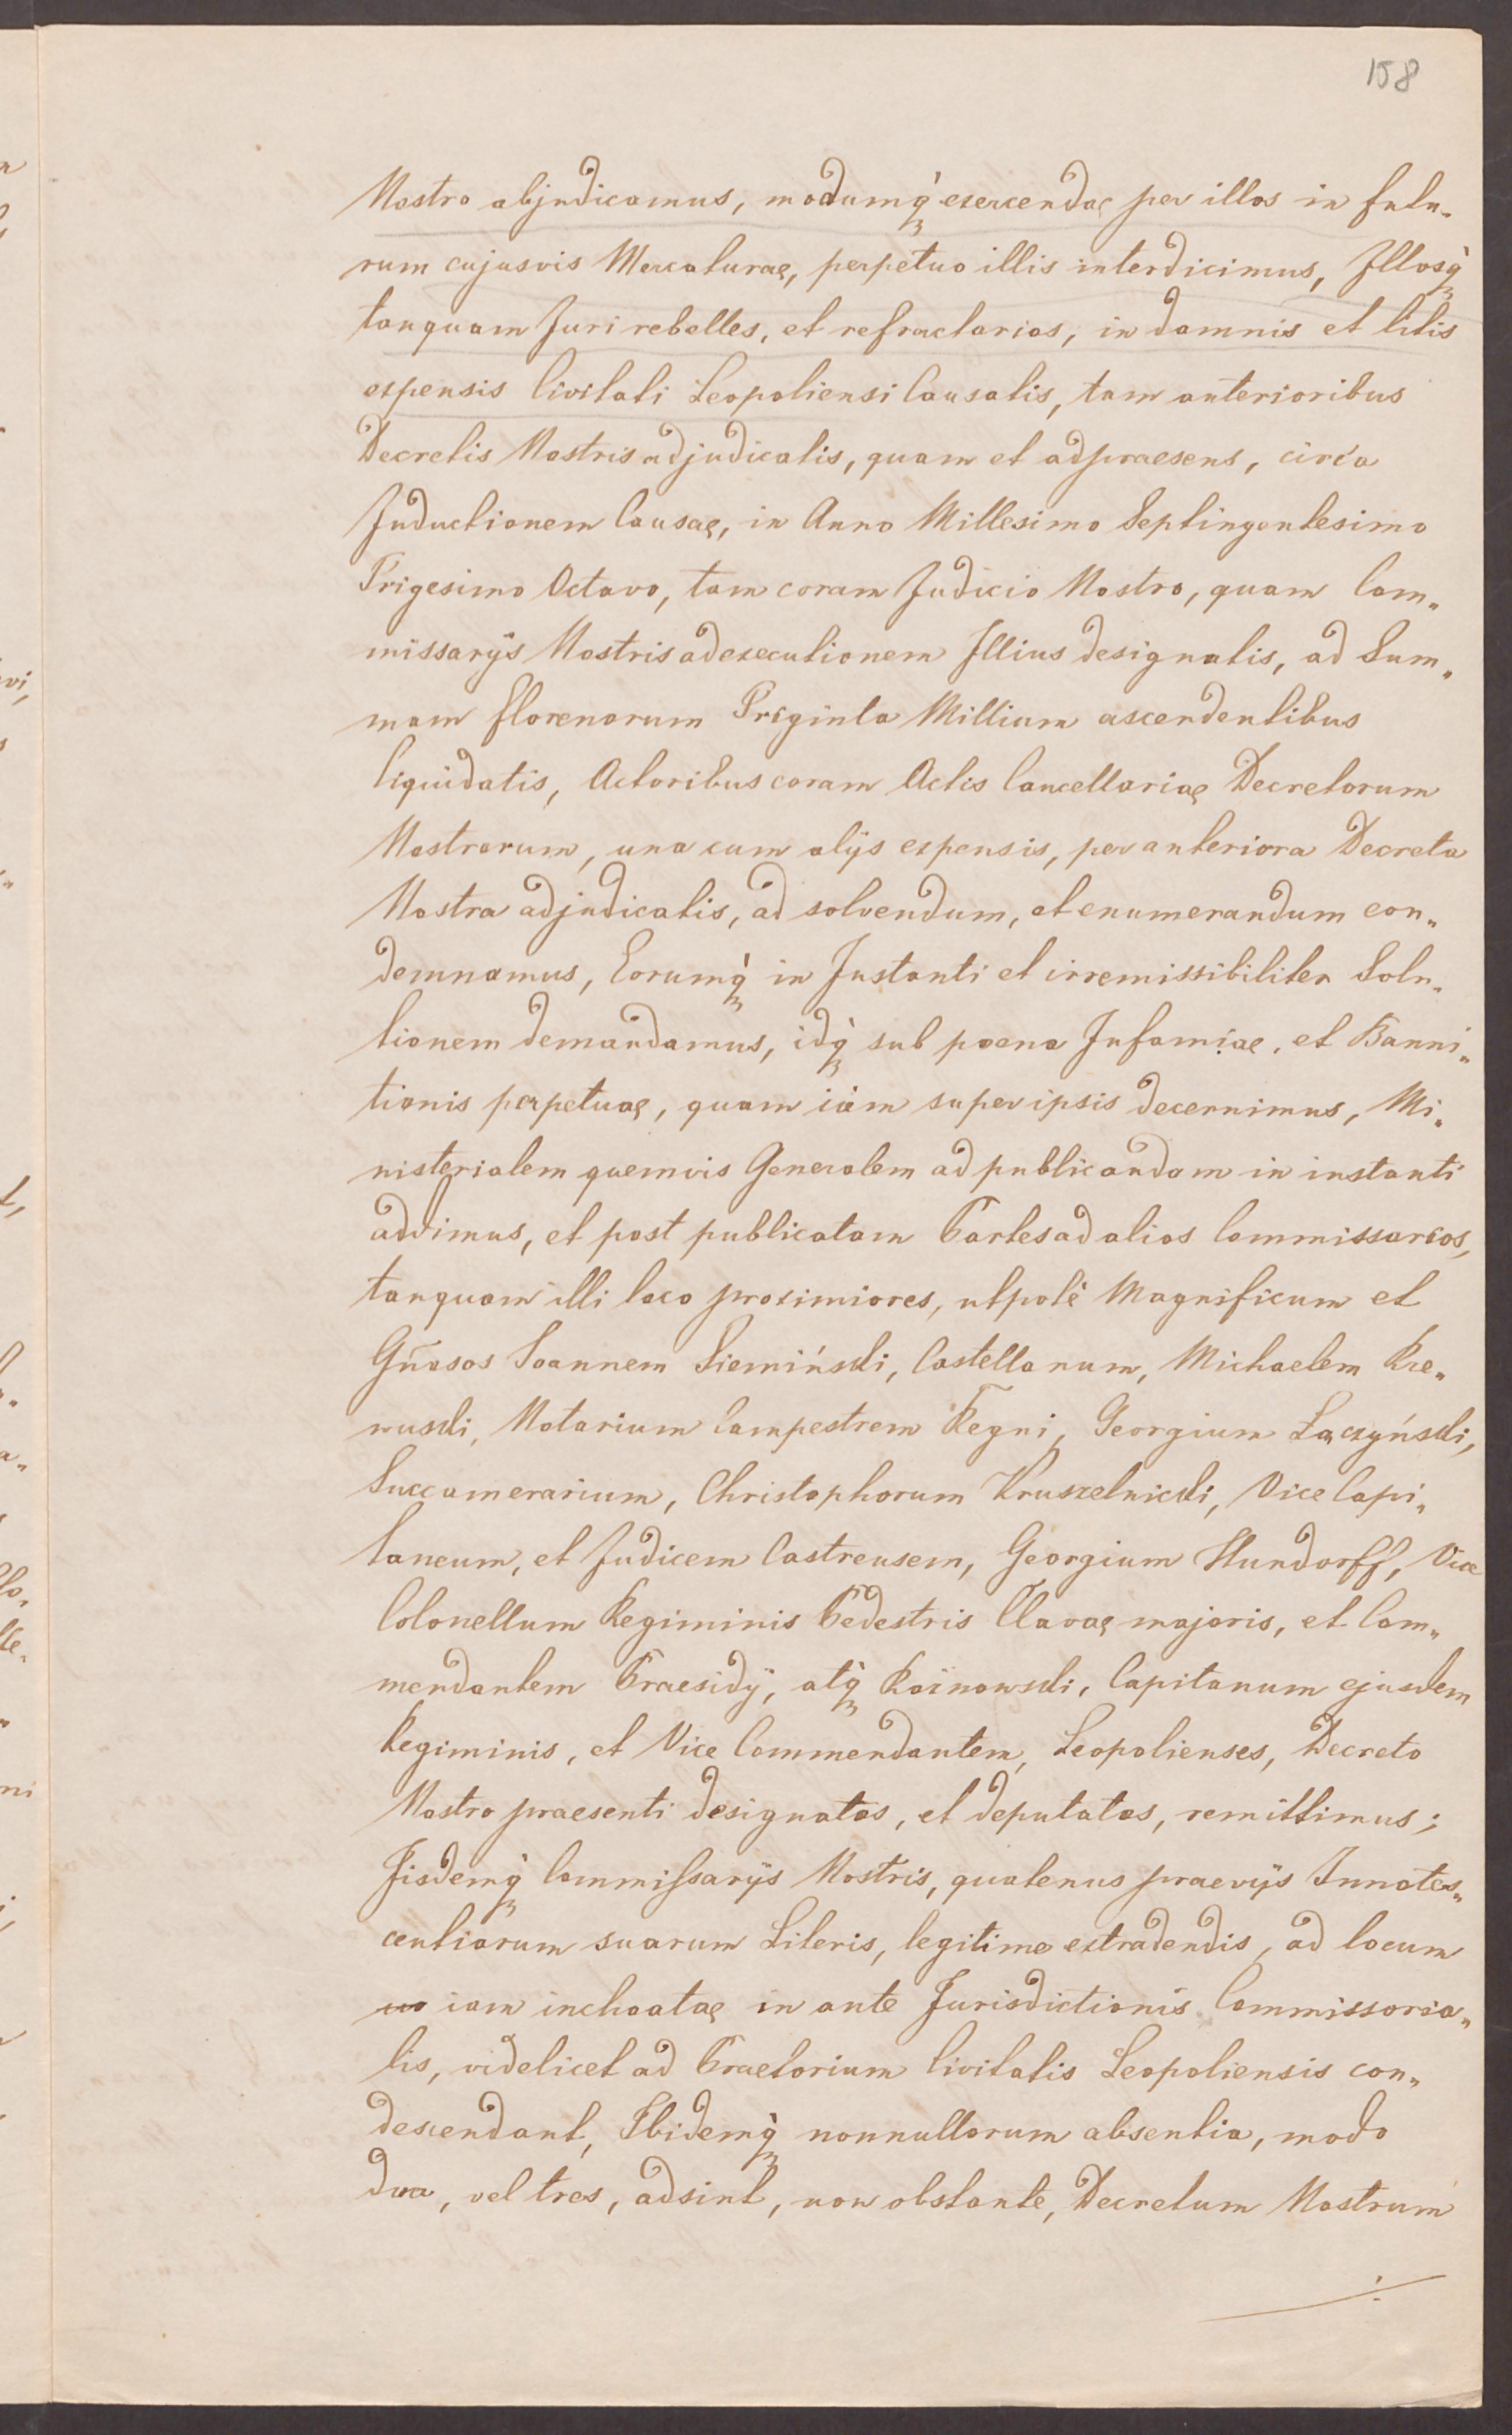 158
Nostro abjudicamus, modumq̀ exercendae per illos in futu„
rum cujusvis Mercaturae, perpetuo illis interdicimus, Illosq̀
tanquam Juri rebelles, et refractarios, in damnis et litis
expensis Civitati Leopoliensi Causatis, tam anterioribus
Decretis Nostris adjudicatis, quam et adpraesens, circa
Inductionem Causae, in Anno Millesimo Septingentesimo
Trigesimo Octavo, tam coram Judicio Nostro, quam Com„
missarijs Nostris ad executionem Illius designatis, ad Sum„
mam florenorum Triginta Millium ascendentibus
liquidatis, Actoribus coram Actis Cancellariae Decretorum
Nostrorum, una cum alijs expensis, per anteriora Decreta
Nostra adjudicatis, ad solvendum, et enumerandum con„
demnamus, Eorumq̀ in Instanti et irremissibiliter Solu„
tionem demandamus, idq̀ sub poena Infamiae, et Banni„
tionis perpetuae, quam iam super ipsis decernimus, Mi„
nisterialem quemvis Generalem ad publicandam in instanti
addimus, et post publicatam Partes ad alios Commissarios,
tanquam illi loco proximiores, utpotè Magnificum et
Gñosos Joannem Siemiński, Castellanum, Michaelem Rze„
wuski, Notarium Campestrem Regni, Georgium Łączyński,
Succamerarium, Christophorum Kruszelnicki, Vice Capi„
taneum, et Judicem Castrensem, Georgium Hundorff, Vice
Colonellum Regiminis Pedestris Clavae majoris, et Com„
mendantem Praesidij, atq̀ Koinowski, Capitanum ejusdem
Regiminis, et Vice Commendantem, Leopolienses, Decreto
Nostro praesenti designatos, et deputatos, remittimus;
Iisdemq̀ Commissarijs Nostris, quatenus praevijs Innotes„
centiarum suarum Literis, legitime extradendis, ad locum
iam inchoatae in ante Jurisdictionis Commissoria„
lis, videlicet ad Praetorium Civitatis Leopoliensis con„
descendant, Ibidemq̀ nonnullorum absentia, modo
duo, vel tres, adsint, non obstante, Decretum Nostrum